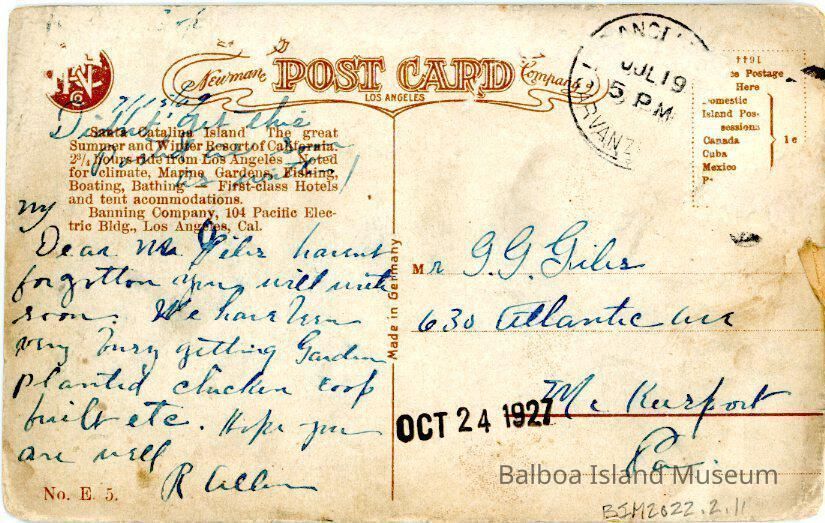 Newman
POST CARD
Company
LOS ANGELES
Santa Catalina Island The great
Summer and Winter Resort of California
2¾ hours ride from Los Angeles Noted
for climate, Marine Gardens, Fishing,
Boating, Bathing First-class Hotels
and tent acommodations.
Banning Company, 104 Pacific Elec-
tric Bldg., Los Angeles, Cal.
Didnt get this
my
Dear Mr Giles havent
forgotton you, will write
soon. We have been
very busy getting Garden
planted chicken coop
built etc. Hope you
are well
R Allen
No. E. 5.
Made in Germany
JUL 19
5 PM
Postage
Here
Domestic
Island Pos-
sessions
Canada
Cuba
Mexico
1c
Mr G. G. Giles
630 Atlantic Ave
Mc Keesport
Pa.
OCT 24 1927
Balboa Island Museum
BIM2022.2.11